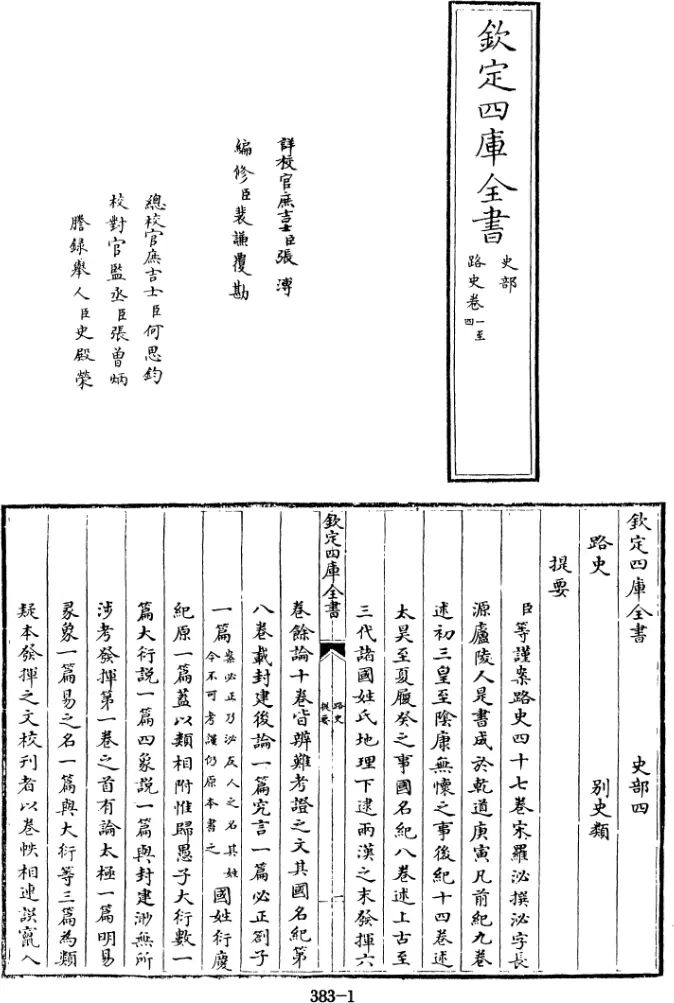 欽定四庫全書
史部
路史卷一至四
詳校官庶吉士臣張溥
編修臣裴謙覆勘
總校官庶吉士臣何思鈞
校對官監丞臣張曾炳
謄錄舉人臣史殿榮
欽定四庫全書 史部四
路史 別史類
提要
臣等謹案路史四十七卷宋羅泌撰泌字長
源廬陵人是書成於乾道庚寅凡前紀九卷
述初三皇至陰康無懷之事後紀十四卷述
太昊至夏履癸之事國名紀八卷述上古至
三代諸國姓氏地理下逮兩漢之末發揮六
欽定四庫全書 路史提要 一
卷餘論十卷皆辨難考證之文其國名紀第
八卷載封建後論一篇究言一篇必正劄子
一篇案必正乃泌友人之名其姓今不可考謹仍原本書之國姓衍慶
紀原一篇蓋以類相附惟歸愚子大衍數一
篇大衍說一篇四象說一篇與封建渺無所
涉考發揮第一卷之首有論太極一篇明易
彖象一篇易之名一篇與大衍等三篇為類
疑本發揮之文校刊者以卷帙相連誤竄入
383-1